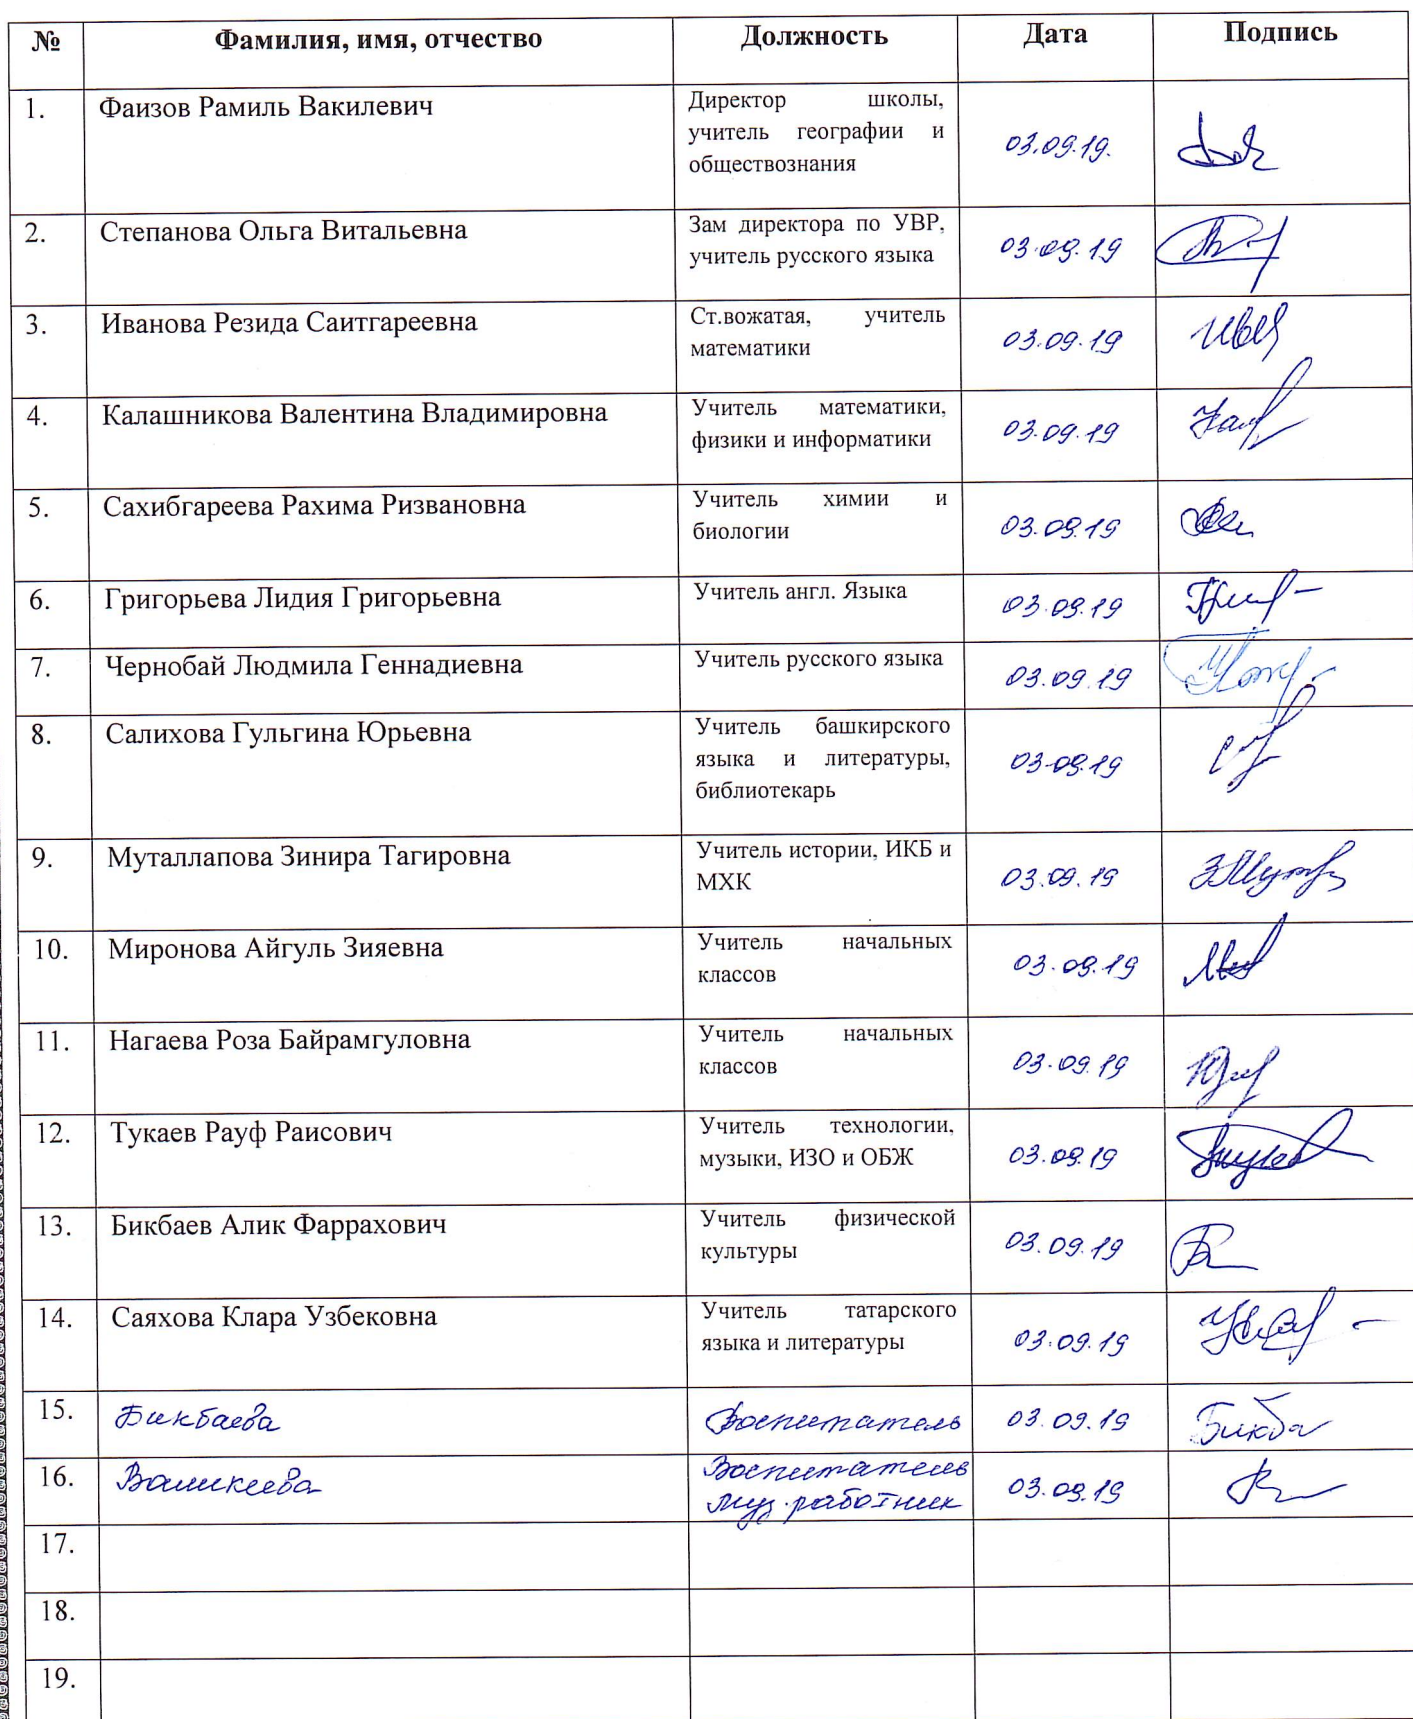 № Фамилия, имя, отчество Должность Дата Подпись
1. Фаизов Рамиль Вакилевич Директор школы,
учитель географии и
обществознания 03.09.19.
2. Степанова Ольга Витальевна Зам директора по УВР,
учитель русского языка 03.09.19
3. Иванова Резида Саитгареевна Ст.вожатая, учитель
математики 03.09.19
4. Калашникова Валентина Владимировна Учитель математики,
физики и информатики 03.09.19
5. Сахибгареева Рахима Ризвановна Учитель химии и
биологии 03.09.19
6. Григорьева Лидия Григорьевна Учитель англ. Языка 03.09.19
7. Чернобай Людмила Геннадиевна Учитель русского языка 03.09.19
8. Салихова Гульгина Юрьевна Учитель башкирского
языка и литературы,
библиотекарь 03.09.19
9. Муталлапова Зинира Тагировна Учитель истории, ИКБ и
МХК 03.09.19
10. Миронова Айгуль Зияевна Учитель начальных
классов 03.09.19
11. Нагаева Роза Байрамгуловна Учитель начальных
классов 03.09.19
12. Тукаев Рауф Раисович Учитель технологии,
музыки, ИЗО и ОБЖ 03.09.19
13. Бикбаев Алик Фаррахович Учитель физической
культуры 03.09.19
14. Саяхова Клара Узбековна Учитель татарского
языка и литературы 03.09.19
15. Бикбаева Воспитатель 03.09.19 Бикба
16. Валикеева Воспитатель
муз.работник 03.09.19
17.
18.
19.